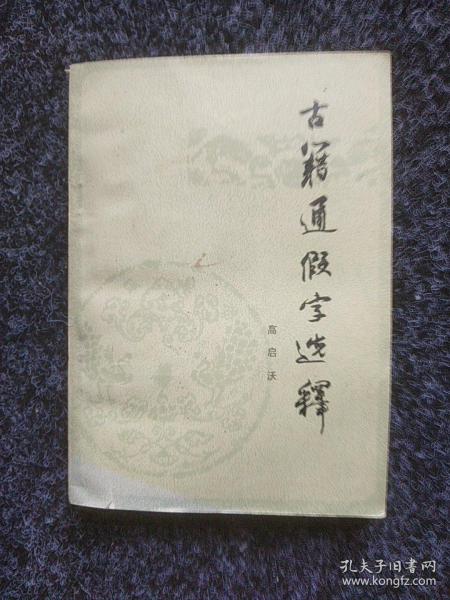 古籍通假字选釋
高启沃
孔夫子旧书网
www.kongfz.com